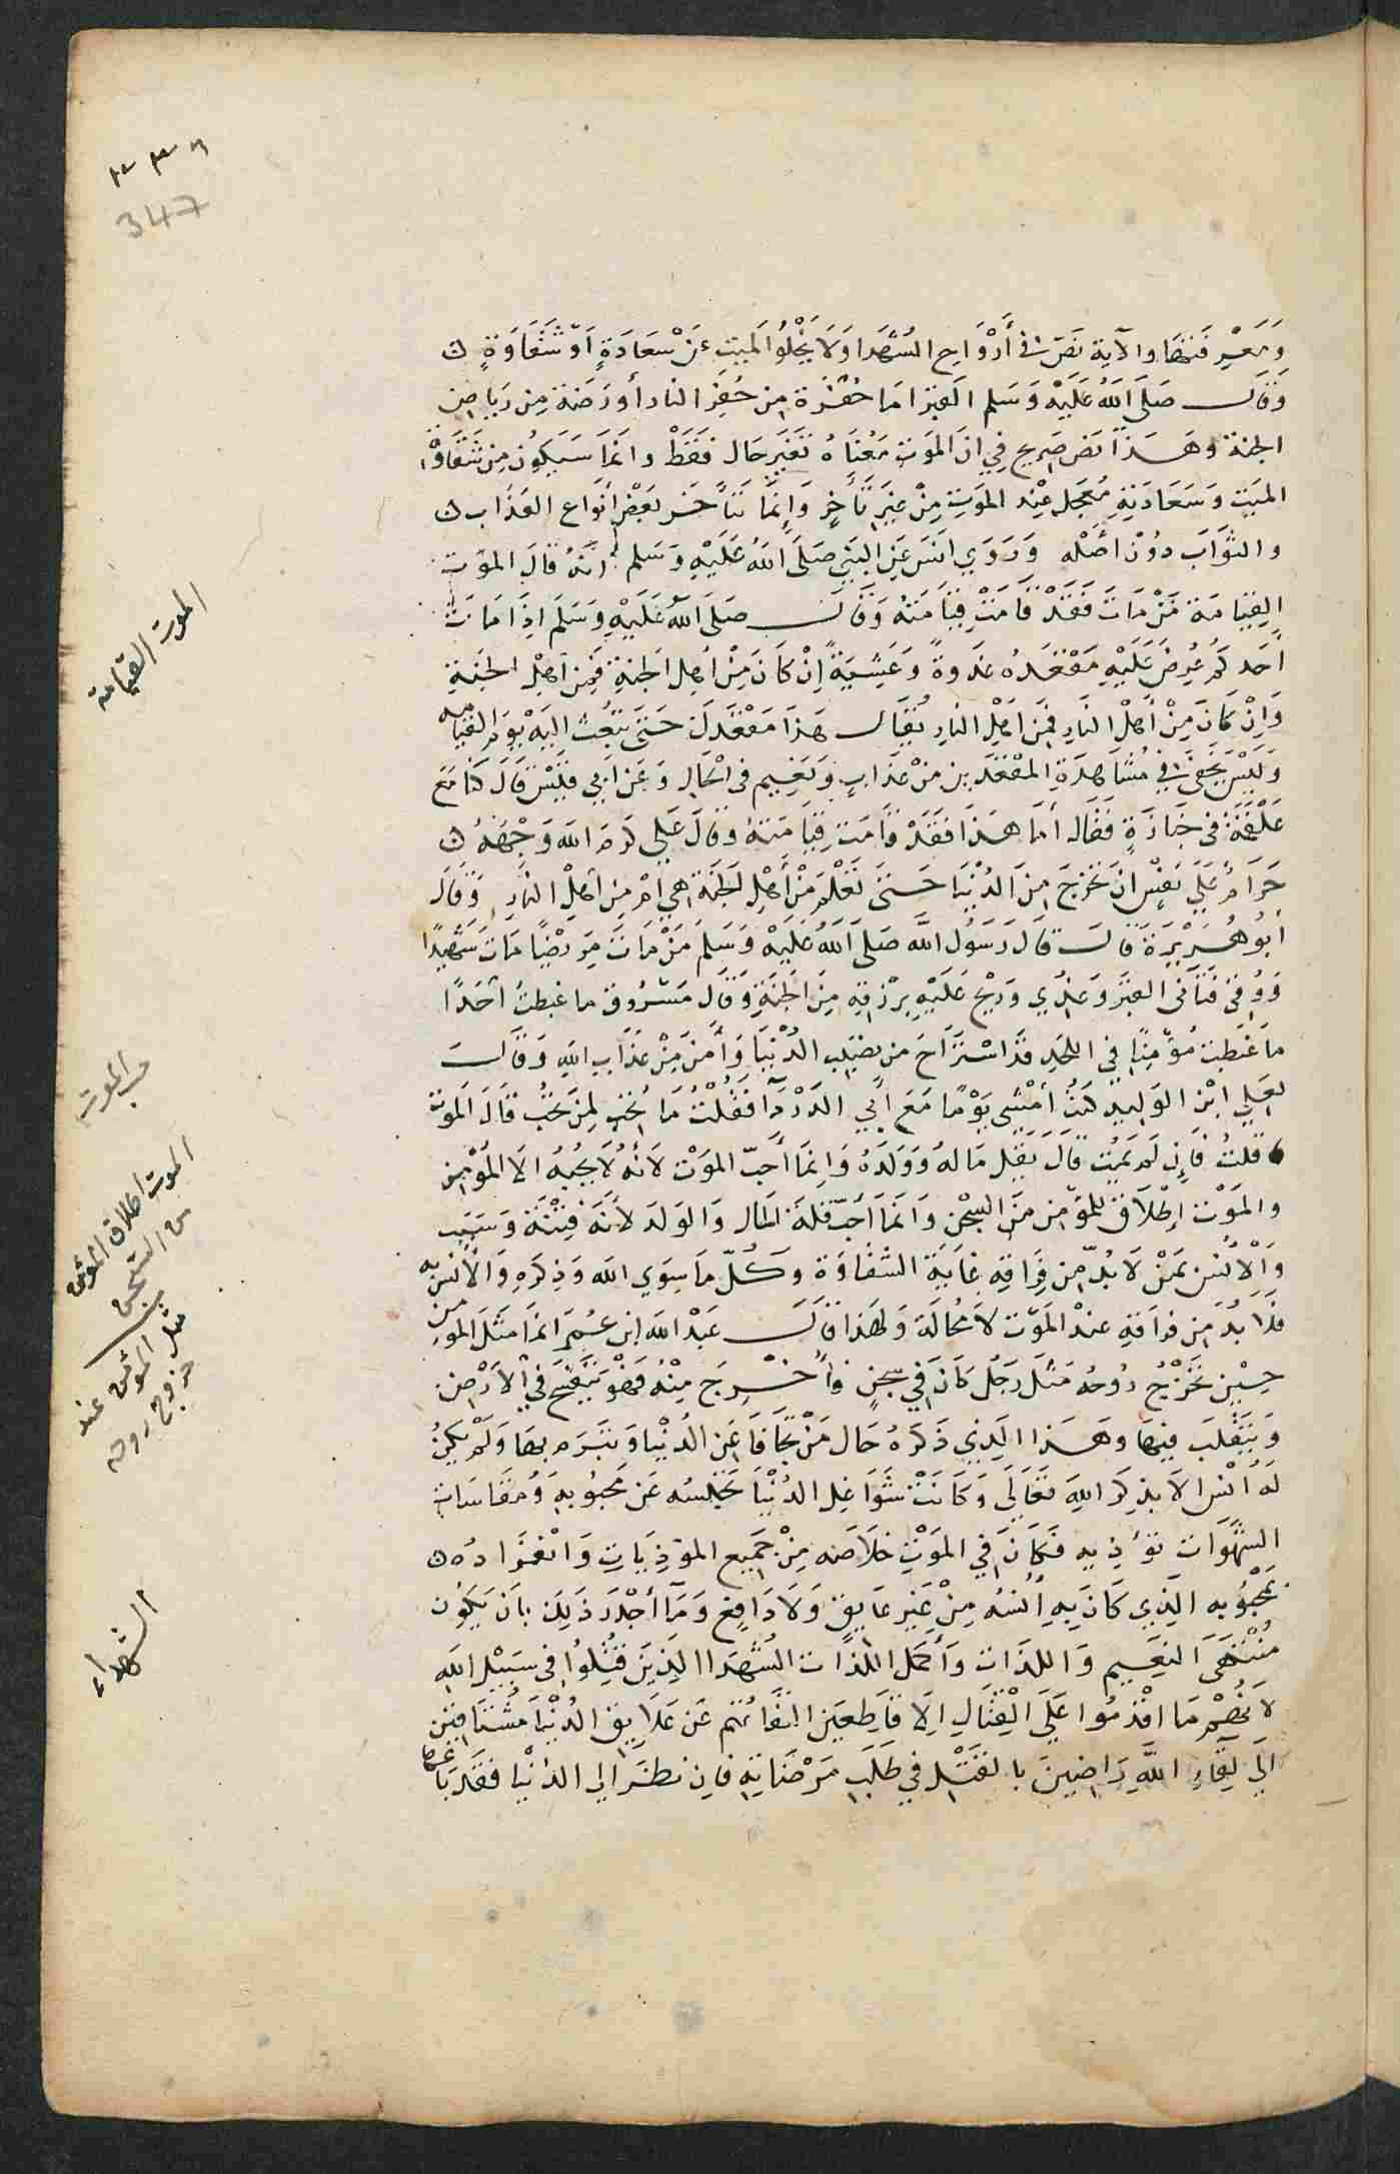 347
ومعرفتها والآية نص في أرواح الشهدا ولا يخلوا الميت عن سعادة أو شقاوة
وقال صلى الله عليه وسلم القبر اما حفرة من حفر النار أو روضة من رياض
الجنة وهذا نص صريح في ان الموت معناه تغير حال فقط وانما سيكون من شقاوة
الميت وسعادته معجل عند الموت من غير تأخر وإنما يتأخر بعض أنواع العذاب
والثواب دون أصله وروي انس عن النبي صلى الله عليه وسلم انه قال الموت
القيامة من مات فقد قامت قيامته وقال صلى الله عليه وسلم اذا مات
أحدكم عرض عليه مقعده غدوة وعشية إن كان من أهل الجنة فمن اهل الجنة
وان كان من أهل النار فمن اهل النار يقال هذا مقعدك حتى تبعث اليه يوم القيامه
وليس يخفى في مشاهدة المقعدين من عذاب ونعيم في الحال وعن ابي قيس قال كنا مع
علقمة في جنازة فقال أما هذا فقد قامت قيامته وقال علي كرم الله وجهه
حرام على نفس ان تخرج من الدنيا حتى تعلم من أهل الجنة هي أم من اهل النار وقال
أبو هريرة قال قال رسول الله صلى الله عليه وسلم من مات مريضا مات شهيدا
ووقي فتاني القبر وغدي وريح عليه برزقه من الجنة وقال مسروق ما غبطت أحدا
ما غبطت مؤمنا في اللحد قد استراح من نصب الدنيا وأمن من عذاب الله وقال
يعلي ابن الوليد كنت أمشي يوما مع أبي الدردآ فقلت ما تحب لمن تحب قال الموت
قلت فان لم يمت قال يقل ماله وولده وانما أحب الموت لأنه لا يحبه الا المؤمن
والموت إطلاق للمؤمن من السجن وانما أحب قلة المال والولد لأنه فتنة وسبب
والانس بمن لا بد من فراقه غاية الشقاوة وكل ما سوي الله وذكره والانس به
فلا بد من فراقه عند الموت لا محالة ولهذا قال عبد الله ابن عمر انما مثل المؤمن
حين تخرج روحه مثل رجل كان في سجن فأخرج منه فهو يتفسح في الارض
ويتقلب فيها وهذا الذي ذكره حال من تجافا عن الدنيا وتبرم بها ولم يكن
له انس الا بذكر الله تعالى وكانت شواغل الدنيا تحبسه عن محبوبه ومقاسات
الشهوات تؤذيه فكان في الموت خلاصه من جميع المؤذيات وانفراده
بمحبوبه الذي كان به أنسه من غير عايق ولا دافع وما أجدر ذلك بان يكون
منتهى النعيم واللذات وأكمل اللذات الشهدا الذين قتلوا في سبيل الله
لانهم ما اقدموا على القتال الا قاطعين التفاتهم عن علايق الدنيا مشتاقين
الي لقاء الله راضين بالقتل في طلب مرضاته فان نظر الي الدنيا فقد باعها
الموت القيامة
حب الموت
الموت اطلاق المؤمن
من السجن
مثل المؤمن عند
خروج روحه
الشهداء